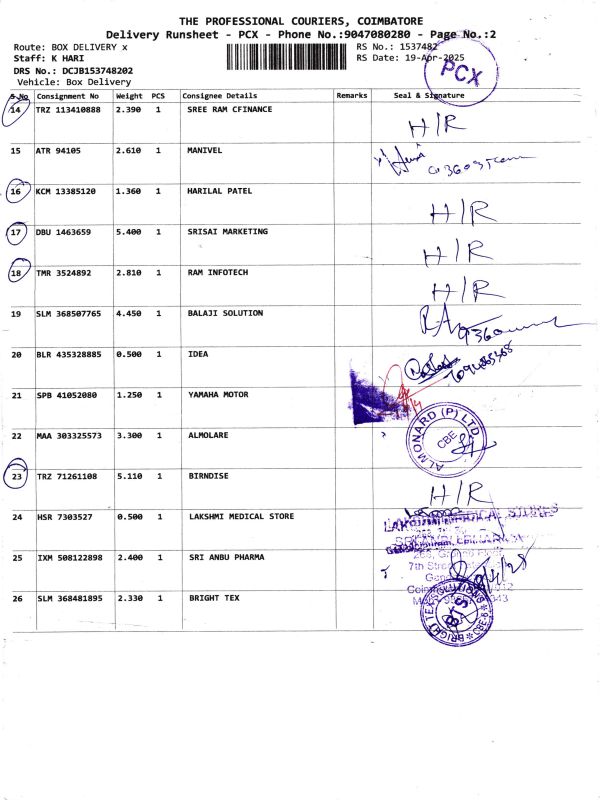 THE PROFESSIONAL COURIERS, COIMBATORE
Delivery Runsheet - PCX - Phone No.:9047080280 - Page No.:2
Route: BOX DELIVERY x
RS No.: 1537482
Staff: K HARI
RS Date: 19-Apr-2025
DRS No.: DCJB153748202
Vehicle: Box Delivery
PCX
S.No Consignment No Weight PCS Consignee Details Remarks Seal & Signature
14 TRZ 113410888 2.390 1 SREE RAM CFINANCE H/R
15 ATR 94105 2.610 1 MANIVEL
16 KCM 13385120 1.360 1 HARILAL PATEL H/R
17 DBU 1463659 5.400 1 SRISAI MARKETING H/R
18 TMR 3524892 2.810 1 RAM INFOTECH H/R
19 SLM 368507765 4.450 1 BALAJI SOLUTION
20 BLR 435328885 0.500 1 IDEA
21 SPB 41052080 1.250 1 YAMAHA MOTOR
22 MAA 303325573 3.300 1 ALMOLARE
ALMONARD (P) LTD
CBE
23 TRZ 71261108 5.110 1 BIRNDISE H/R
24 HSR 7303527 0.500 1 LAKSHMI MEDICAL STORE
LAKSHMI MEDICAL STORES
25 IXM 508122898 2.400 1 SRI ANBU PHARMA
7th Street
26 SLM 368481895 2.330 1 BRIGHT TEX
BTS